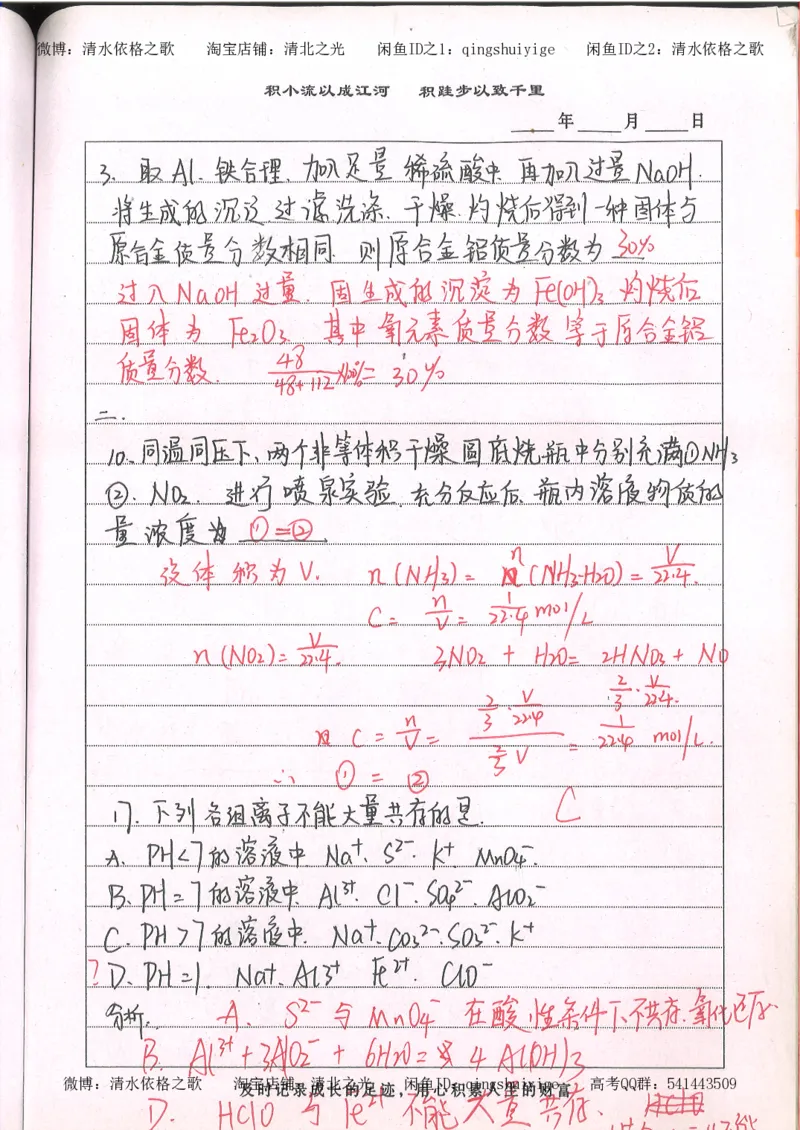 微博：清水依格之歌 淘宝店铺：清北之光 闲鱼ID之1：qingshuiyige 闲鱼ID之2：清水依格之歌
积小流以成江河 积跬步以致千里
年 月 日
3. 取Al、铁合理、加入足量稀硫酸中、再加入过量NaOH.
将生成的沉淀过滤洗涤、干燥、灼烧后得到一种固体与
原合金质量分数相同. 则原合金铝质量分数为 30%
过入NaOH过量. 因生成的沉淀为Fe(OH)3 灼烧后
固体为 Fe2O3. 其中氧元素质量分数等于原合金铝
质量分数. 48/(48+112)×100%= 30%
二.
10、同温同压下、两个非等体积干燥圆底烧瓶中分别充满①NH3
②. NO2. 进行喷泉实验. 充分反应后、瓶内溶液物质的
量浓度为 ①=②.
设体积为V. n(NH3)= n(NH3·H2O)= V/22.4.
C= n/V = 1/22.4 mol/L
n(NO2)= V/22.4. 3NO2 + H2O= 2HNO3 + NO
2/3 · V/22.4.
C = n/V = (2/3 · V/22.4)/(2/3 V) = 1/22.4 mol/L.
∴ ① = ②
17. 下列各组离子不能大量共存的是. C
A. PH<7的溶液中 Na+、S2-、K+ MnO4-.
B、PH=7的溶液中. Al3+. Cl-. SO42-. AlO2-
C. PH>7的溶液中. Na+. CO32-. SO32-. K+
? D、PH=1. Na+、Al3+ Fe2+. ClO-
分析. A. S2- 与 MnO4- 在酸性条件下不共存. 氧化还原
B. Al3+ + 3AlO2- + 6H2O = 4 Al(OH)3
微博：清水依格之歌 淘宝店铺：清北之光 闲鱼ID：qingshuiyige 高考QQ群：541443509
及时记录成长的足迹，用心积累人生的财富
D. HClO 与 Fe2+ 不能大量共存、